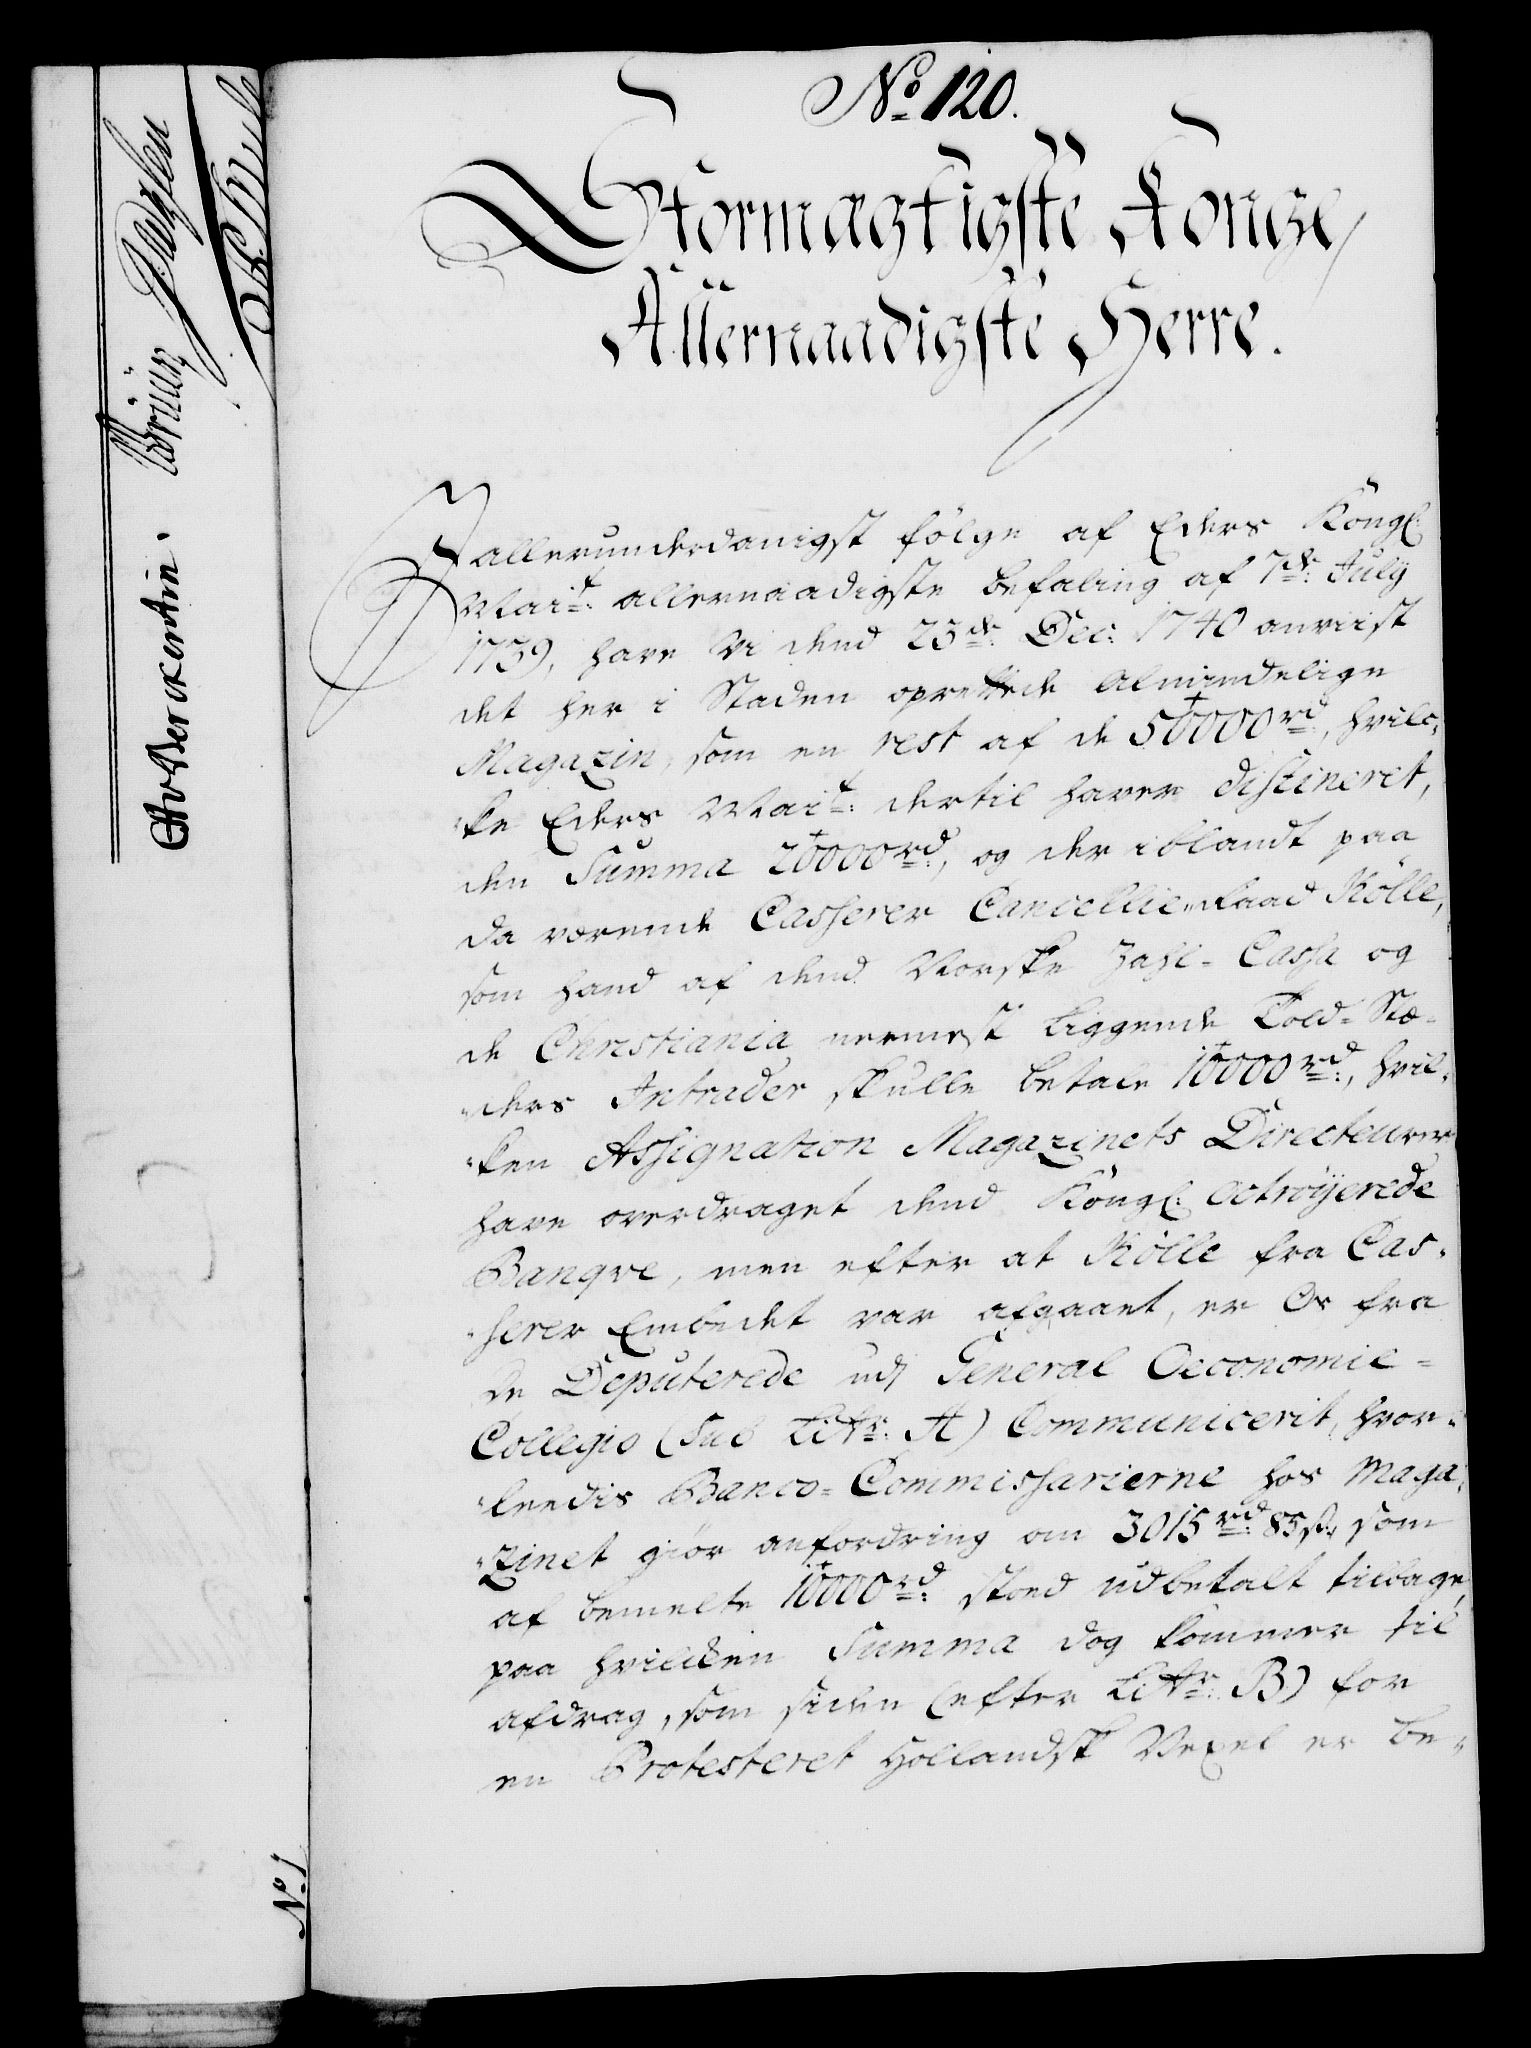 No 120.
Stormagtigste Konge,
Allernaadigste Herre.
I allerunderdanigst følge af Eders Kongl:
Mait: allernaadigste befaling af 7de July
1739, have Vi dend 23de Dec: 1740 anviist
det her i Staden oprettede Almindelige
Magazin, som en rest af de 50000 rd, hvilc„
„ke Eders Mait: dertil haver distineret,
den Summa 20000 rd:, og der iblandt paa
da værende Casserer Cancellie-Raad Kölle,
som hand af dend Norske Zahl-Cassa og
de Christiania nermest liggende Told-Stæ„
„ders Intrader skulle betale 10000 rd:, hvil„
„ken Assignation Magazinets Directeurer
have overdraget dend Kongl: octroyerede
Banqve, men efter at Kölle fra Cas„
„serer Embedet var afgaaet, er Os fra
de Deputerede udi General Oeconomie-
Collegio (Sub Littr: A) Communicerit, hvor„
„ledis Banco-Commissarierne hos Maga„
„zinet giør anfordring om 3015 rd: 85 s, som
af bemelte 10000 rd: stoed udbetalt tilbage,
paa hvilcken Summa dog kommer til
afdrag, som siden (efter Littr: B) for
en Protesteret Hollandsk Vexel er be„
No. 1
Holst
Brüng
Berckentin.